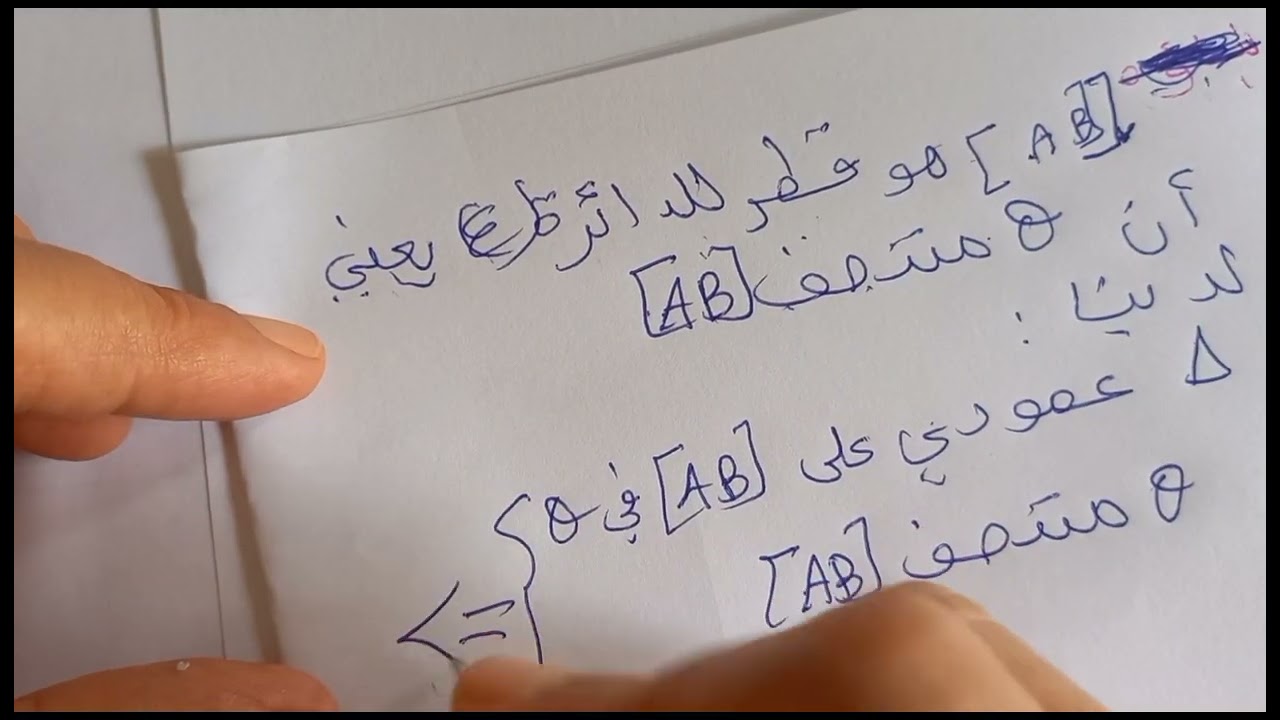 [AB] هو قطر للدائرة يعني
أن O منتصف [AB]
لدينا :
Δ عمودي على [AB] في O
O منتصف [AB]
<=